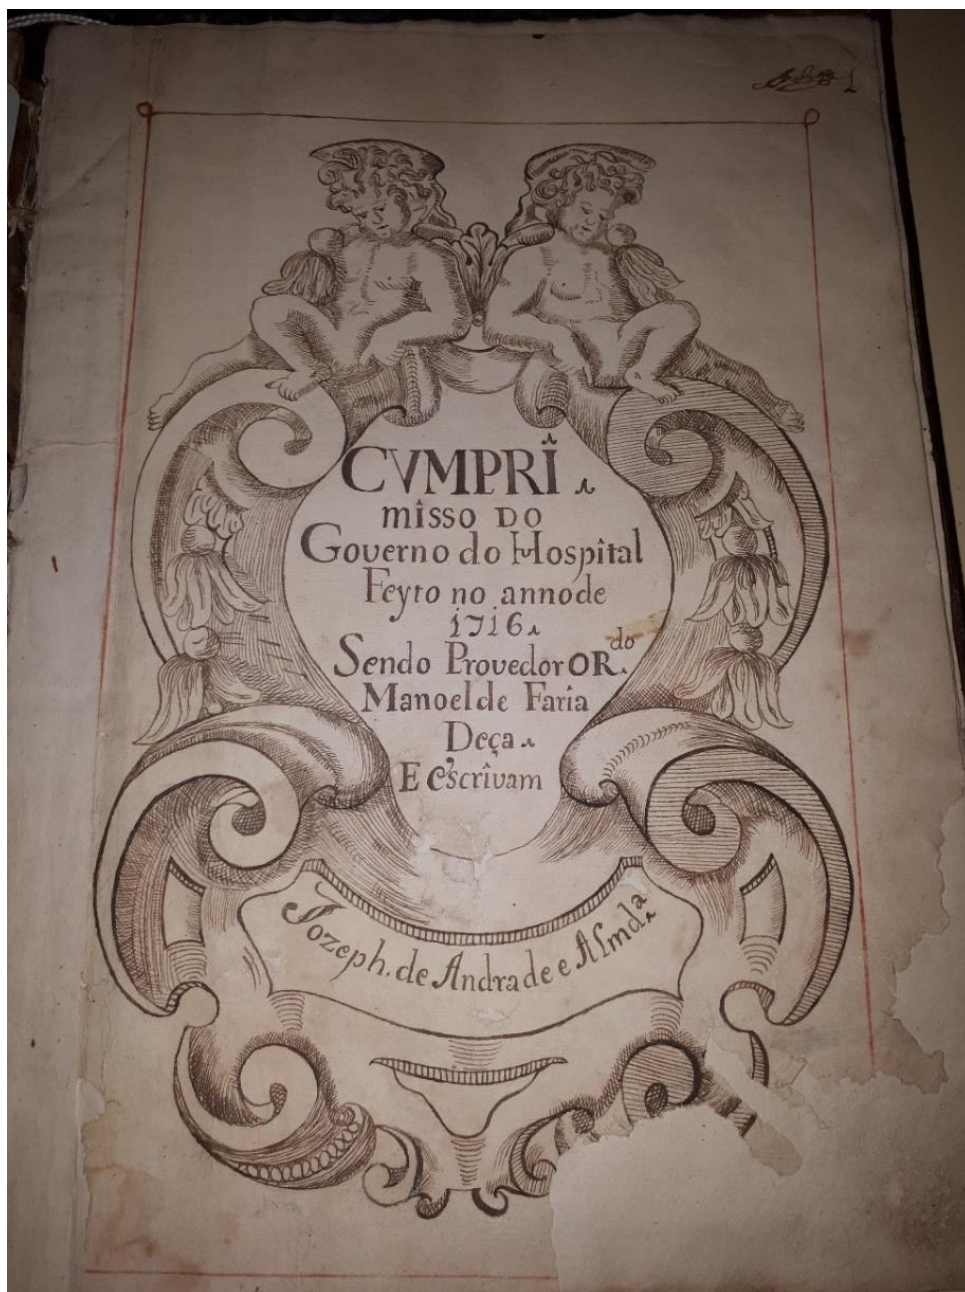 CVMPRI
misso DO
Governo do Hospital
Feyto no anno de
1716
Sendo Provedor O R.do
Manoel de Faria
Deça
E escrivam
Jozeph. de Andrade e Almd.a